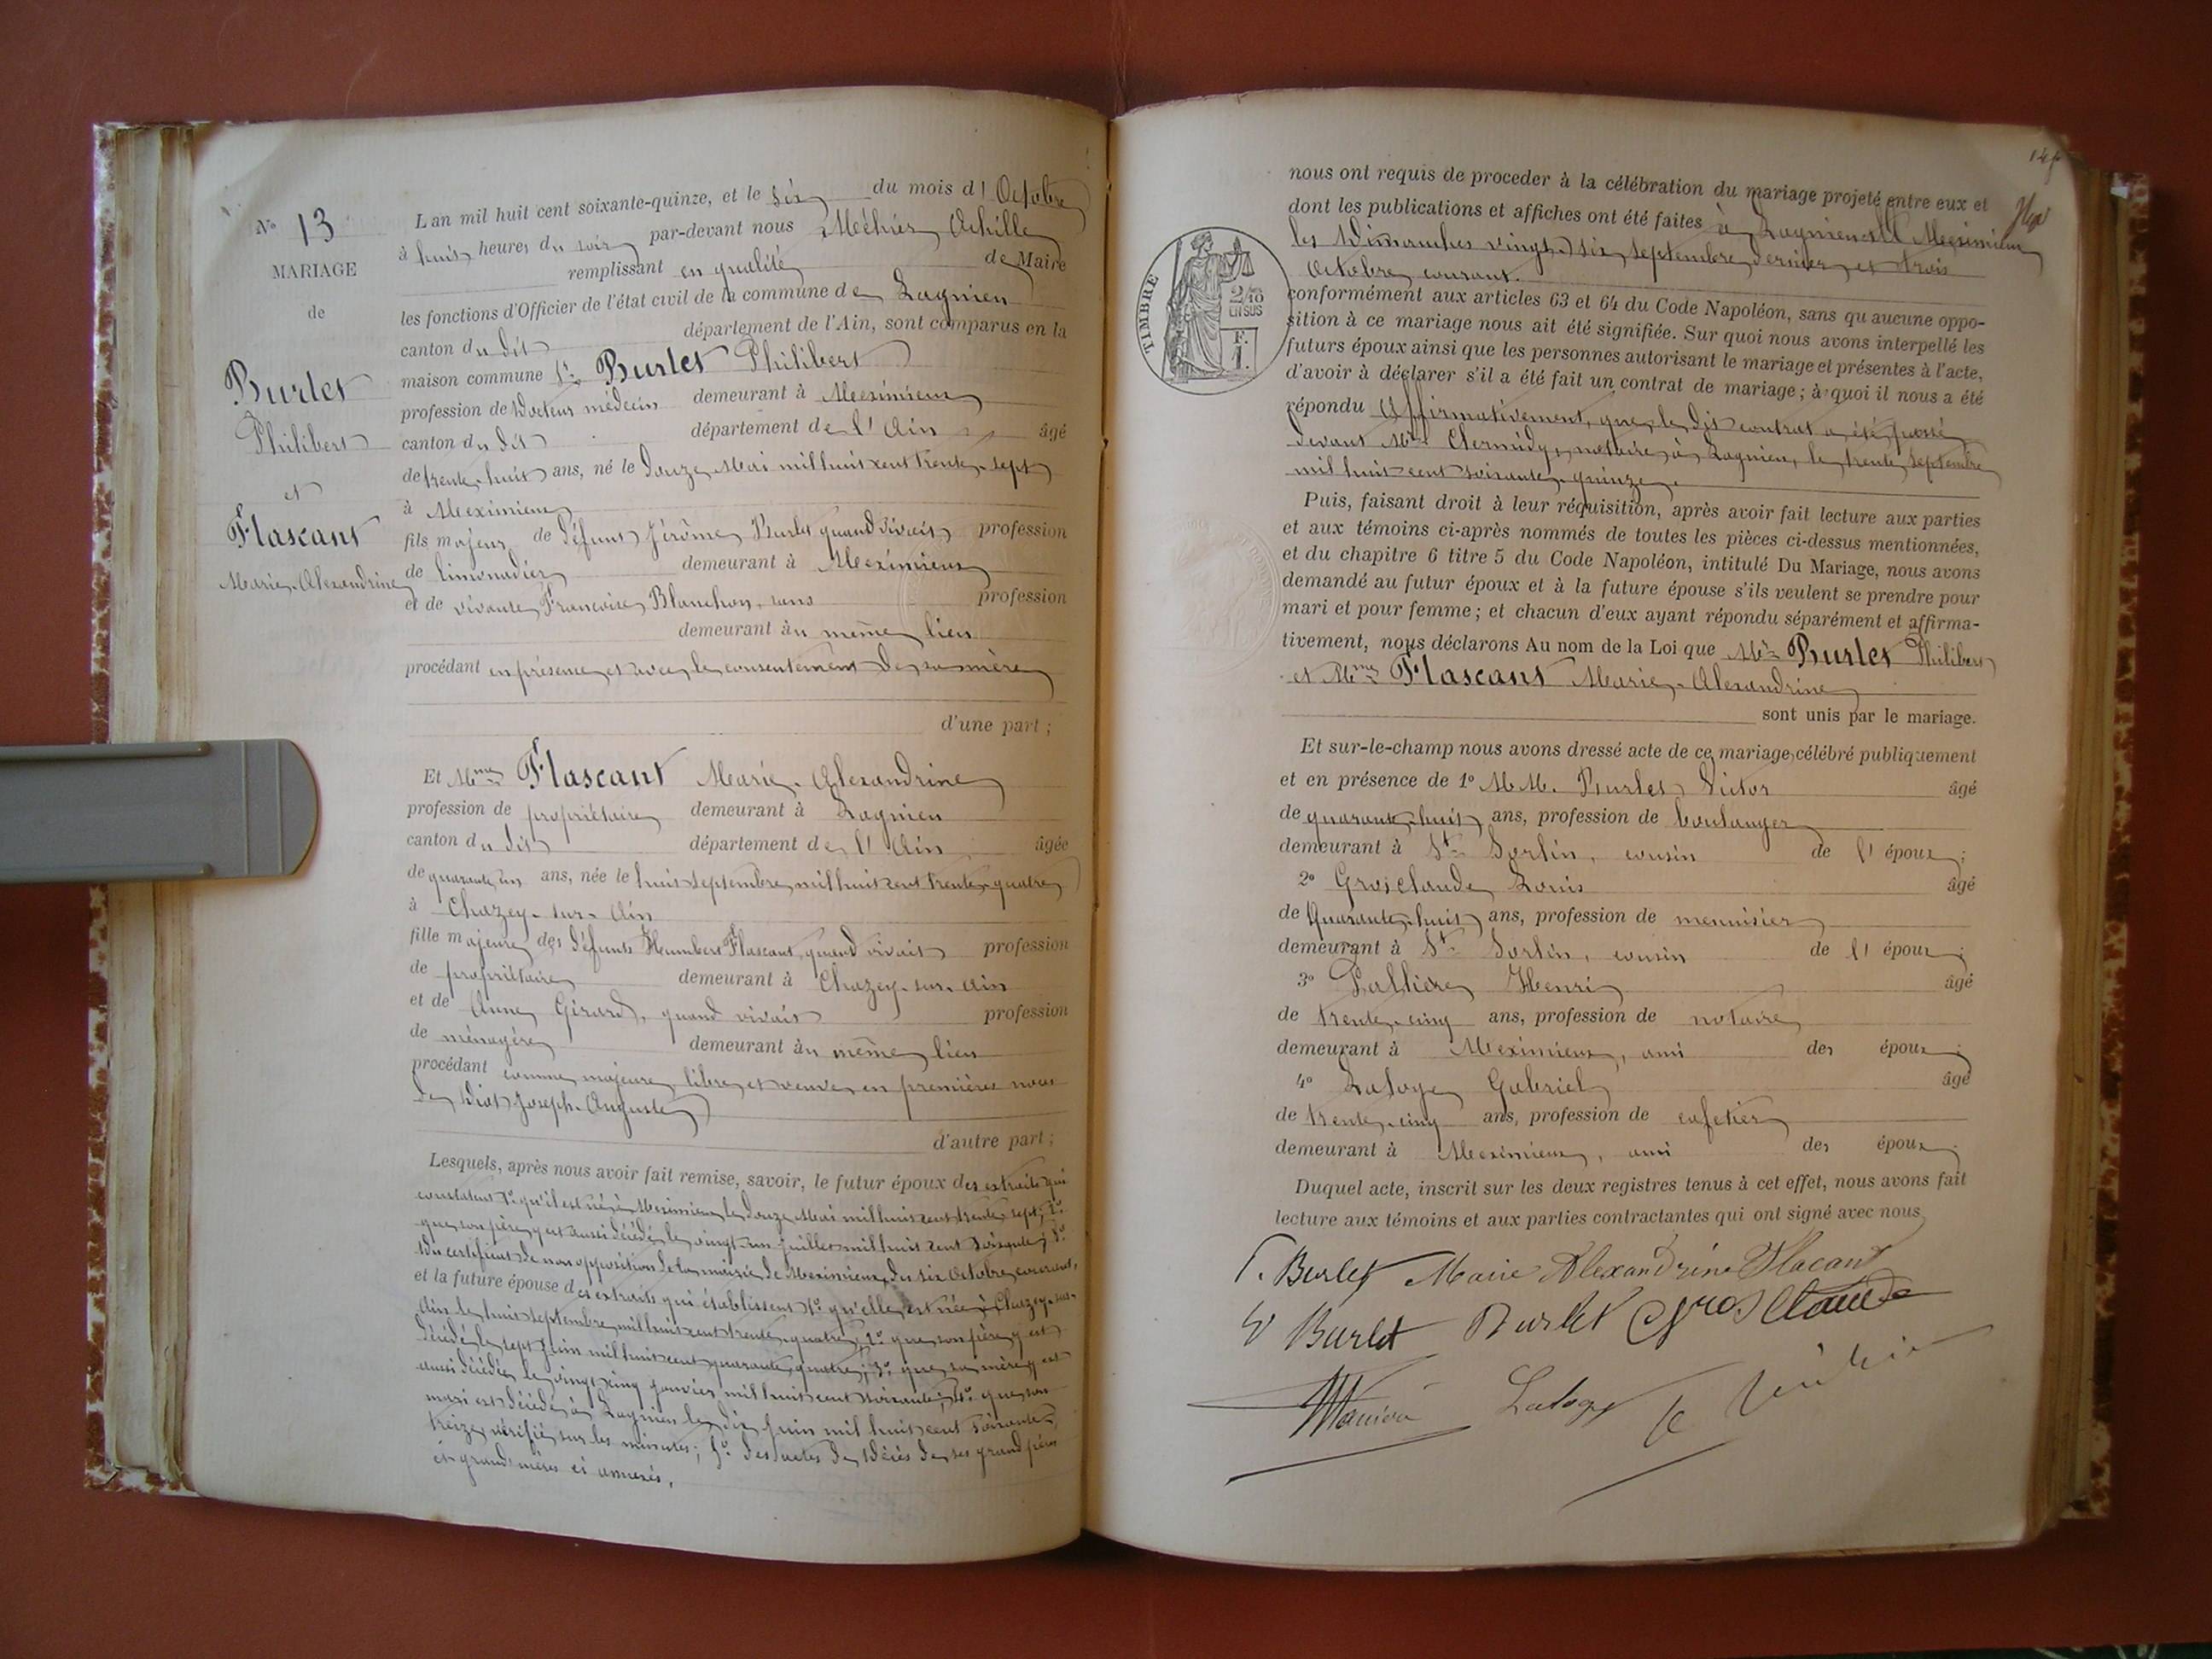 N° 13
MARIAGE
de
Burlet
Philibert
et
Flascant
Marie-Alexandrine
L'an mil huit cent soixante-quinze, et le six du mois d'Octobre
à huit heures du soir par-devant nous Achille
remplissant en qualité de Maire
les fonctions d'Officier de l'état civil de la commune de Lagnieu
canton du dit département de l'Ain, sont comparus en la
maison commune Sr Burlet Philibert
profession de Docteur médecin demeurant à Meximieux
canton du dit département de l'Ain âgé
de trente-huit ans, né le douze Mai mil huit cent trente-sept
à Meximieux
fils majeur de défunt Jérôme Burlet quand vivait profession
de limonadier demeurant à Meximieux
et de vivante Françoise Blanchon, sans profession
demeurant au même lieu
procédant en présence et avec le consentement de sa mère
d'une part ;
Et Mme Flascant Marie-Alexandrine
profession de propriétaire demeurant à Lagnieu
canton du dit département de l'Ain âgée
de quarante un ans, née le huit septembre mil huit cent trente-quatre
à Chazey-sur-Ain
fille majeure des défunts Humbert Flascant, quand vivait profession
de propriétaire demeurant à Chazey-sur-Ain
et de Anne Gérard, quand vivait profession
de ménagère demeurant au même lieu
procédant comme majeure, libre, et veuve en premières noces
de Diot Joseph-Auguste
d'autre part ;
Lesquels, après nous avoir fait remise, savoir, le futur époux des extraits qui
constatent 1° qu'il est né à Meximieux le douze Mai mil huit cent trente-sept; 2°
que son père y est aussi décédé le vingt-un juillet mil huit cent soixante; 3°
Du certificat de non opposition de la mairie de Meximieux du six Octobre courant,
et la future épouse des extraits qui établissent 1° qu'elle est née à Chazey-sur-
Ain le huit septembre mil huit cent trente-quatre; 2° que son père y est
décédé le sept Juin mil huit cent quarante-quatre; 3° que sa mère y est
aussi décédée le vingt cinq janvier mil huit cent soixante; 4° que son
mari est décédé à Lagnieu le dix Juin mil huit cent soixante-
treize, vérifié sur les minutes; 5° des actes de Décès de ses grand pères
et grand'mères ci annexés.
nous ont requis de proceder à la célébration du mariage projeté entre eux et
dont les publications et affiches ont été faites à Lagnieu et Meximieux
les Dimanches vingt-six septembre dernier et trois
Octobre courant.
TIMBRE
2/10
EN SUS
F.
1.
conformément aux articles 63 et 64 du Code Napoléon, sans qu'aucune oppo-
sition à ce mariage nous ait été signifiée. Sur quoi nous avons interpellé les
futurs époux ainsi que les personnes autorisant le mariage et présentes à l'acte,
d'avoir à déclarer s'il a été fait un contrat de mariage ; à quoi il nous a été
répondu Affirmativement, que le dit contrat a été passé
devant Mtre notaire à Lagnieu, le trente Septembre
mil huit cent soixante-quinze.
Puis, faisant droit à leur réquisition, après avoir fait lecture aux parties
et aux témoins ci-après nommés de toutes les pièces ci-dessus mentionnées,
et du chapitre 6 titre 5 du Code Napoléon, intitulé Du Mariage, nous avons
demandé au futur époux et à la future épouse s'ils veulent se prendre pour
mari et pour femme ; et chacun d'eux ayant répondu séparément et affirma-
tivement, nous déclarons Au nom de la Loi que Mr Burlet Philibert
et Mme Flascant Marie-Alexandrine
sont unis par le mariage.
Et sur-le-champ nous avons dressé acte de ce mariage, célébré publiquement
et en présence de 1° MM. Burlet Victor âgé
de quarante-huit ans, profession de boulanger
demeurant à St Sorlin, cousin de l'époux ;
2° Grosclaude Louis âgé
de Quarante-huit ans, profession de menuisier
demeurant à St Sorlin, cousin de l'époux ;
3° Henri âgé
de trente-cinq ans, profession de notaire
demeurant à Meximieux, ami des époux ;
4° Laloge Gabriel âgé
de trente-cinq ans, profession de cafetier
demeurant à Meximieux, ami des époux.
Duquel acte, inscrit sur les deux registres tenus à cet effet, nous avons fait
lecture aux témoins et aux parties contractantes qui ont signé avec nous
P. Burlet Marie Alexandrine Flacant
V Burlet Burlet Grosclaude
Laloge